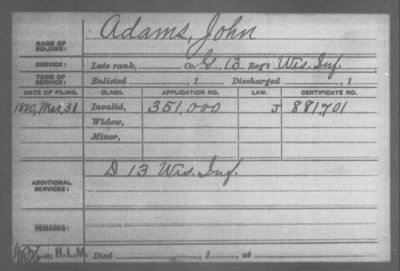 Adams, John
NAME OF SOLDIER:
SERVICE: Late rank, Co. G, 13 Reg't Wis. Inf.
TERM OF SERVICE: Enlisted , 1 Discharged , 1
DATE OF FILING. CLASS. APPLICATION NO. LAW. CERTIFICATE NO.
1880, Mar. 31 Invalid, 351,000 J 881,701
Widow,
Minor,
ADDITIONAL SERVICES: D 13 Wis. Inf.
REMARKS:
H.L.M. Died , 1 , at